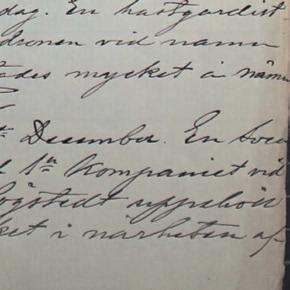 dag. En hästgardist
vid namn
ades mycket å nämn
December. En
1sta Kompaniet vid
Högstedt uppehöll
ket i närheten af